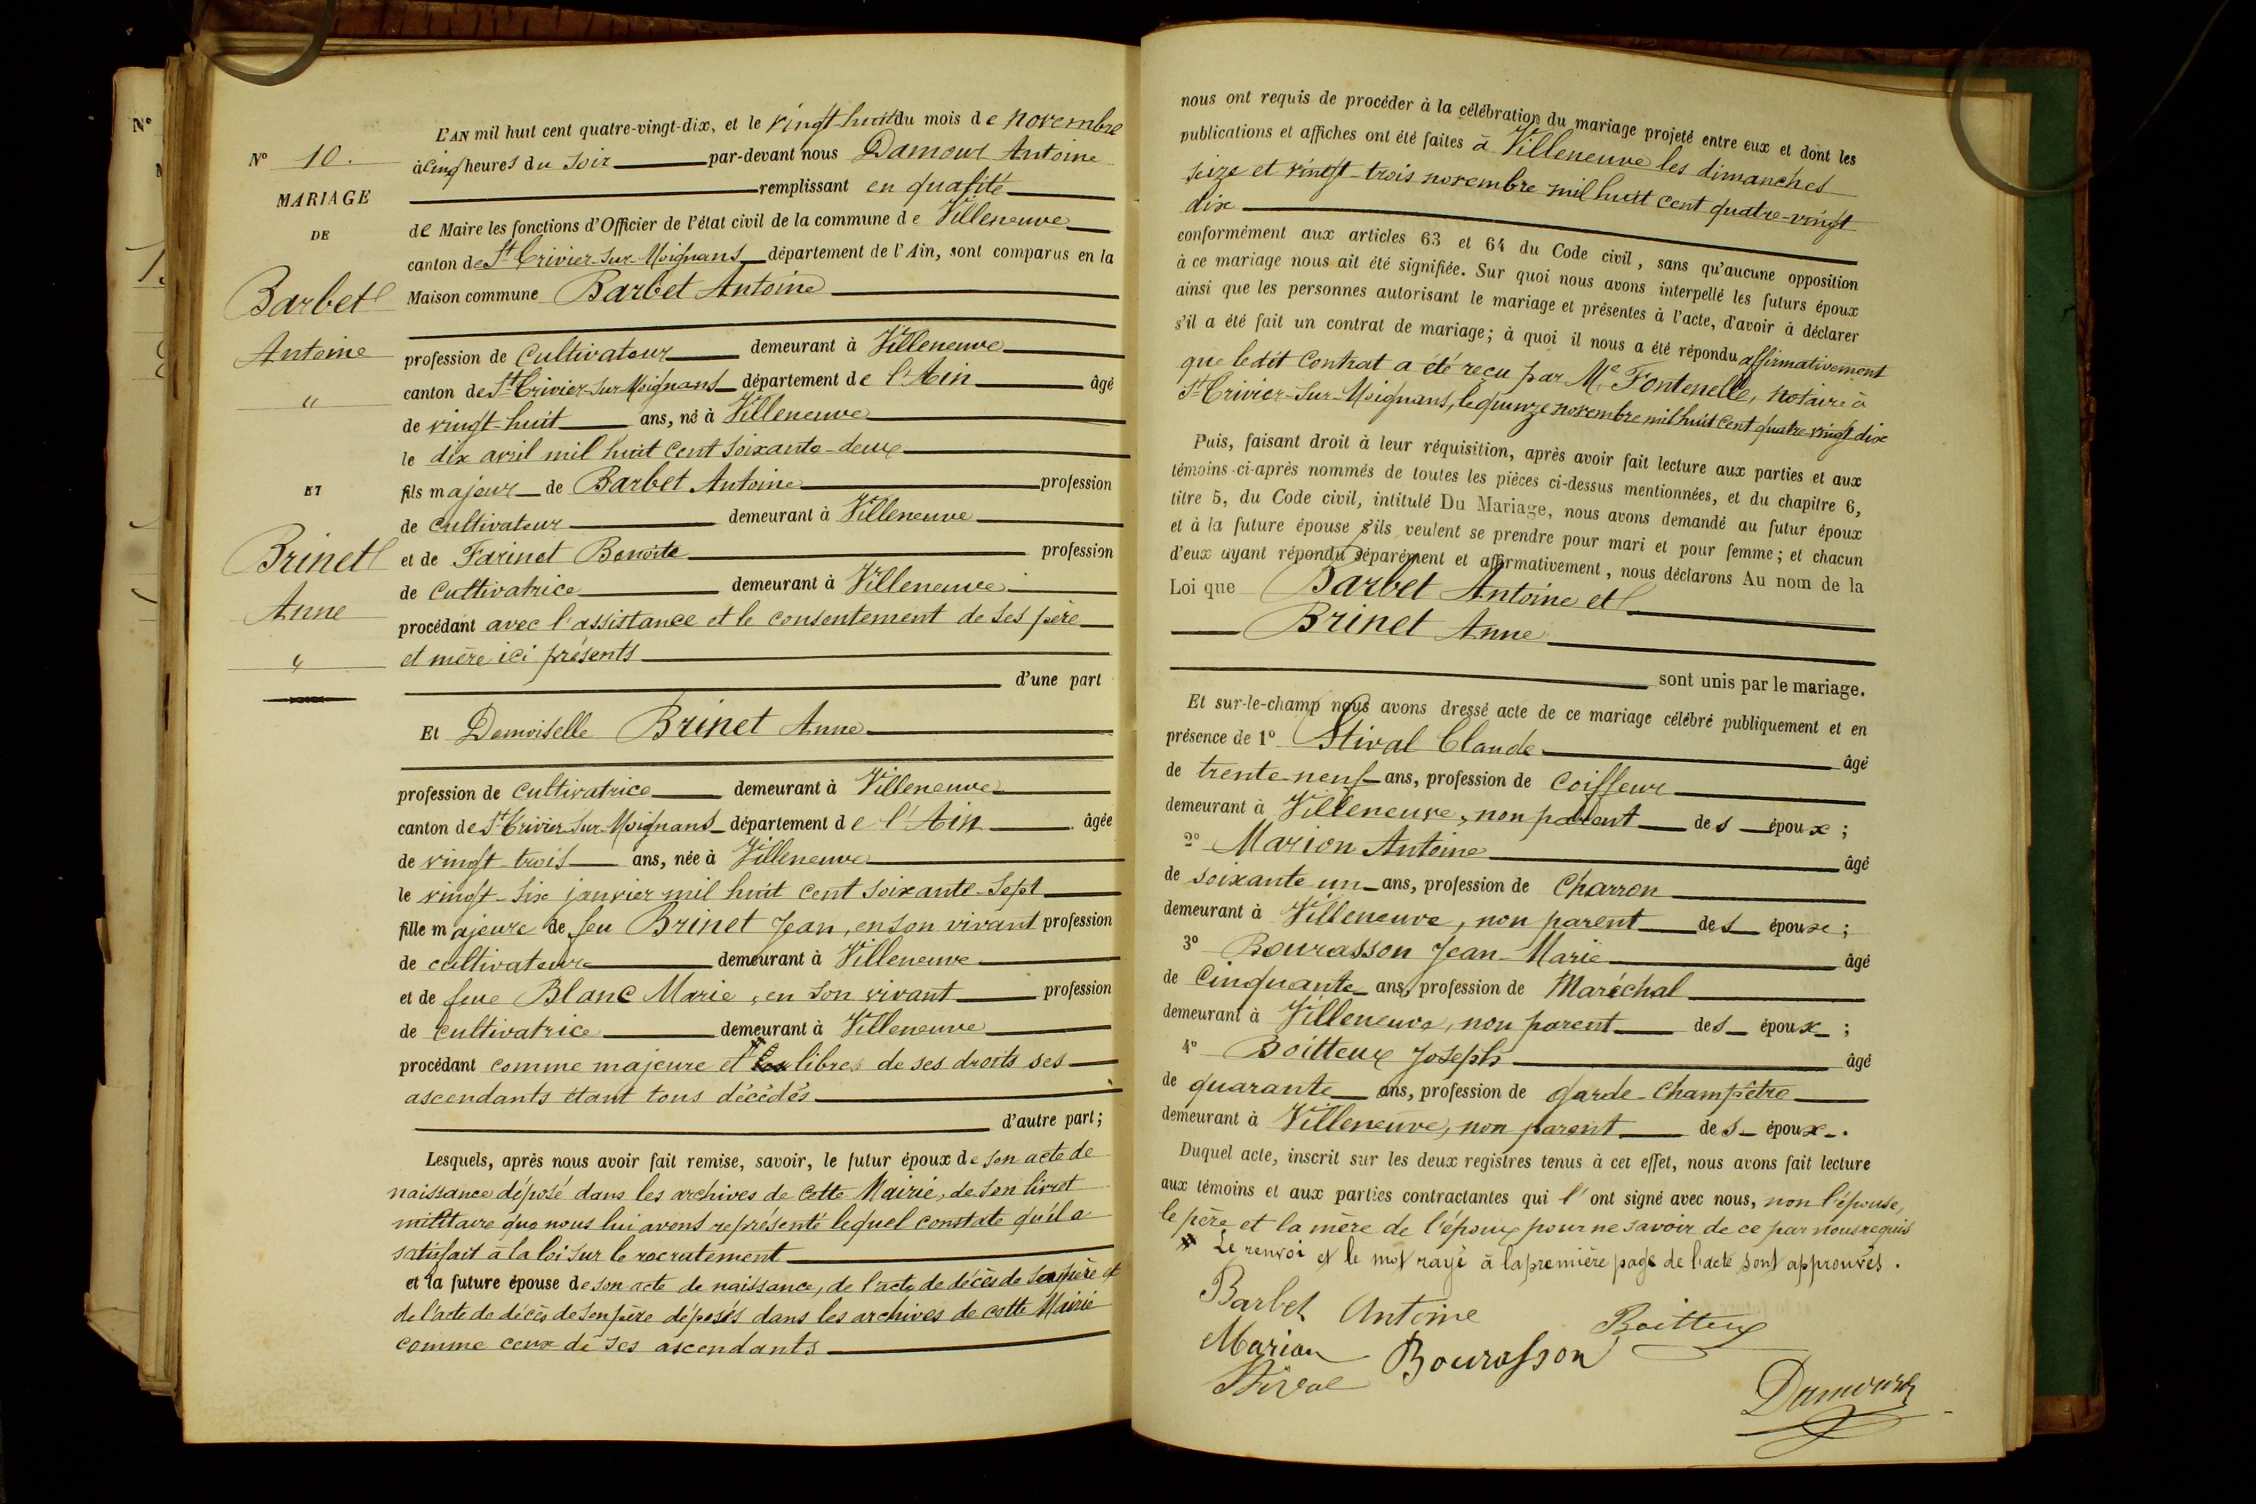 N°
L'AN mil huit cent quatre-vingt-dix, et le vingt-huit du mois de novembre
N° 10.
à cinq heures du soir par-devant nous Damour Antoine
MARIAGE
remplissant en qualité
DE
de Maire les fonctions d'Officier de l'état civil de la commune de Villeneuve
canton de St Trivier-sur-Moignans département de l'Ain, sont comparus en la
Barbet
Maison commune Barbet Antoine
Antoine
profession de cultivateur demeurant à Villeneuve
canton de St Trivier-sur-Moignans département de l'Ain âgé
"
de vingt-huit ans, né à Villeneuve
le dix avril mil huit cent soixante-deux
ET
fils majeur de Barbet Antoine profession
de cultivateur demeurant à Villeneuve
Brinet
et de Farinet Benoite profession
de cultivatrice demeurant à Villeneuve
Anne
procédant avec l'assistance et le consentement de ses père
"
et mère ici présents
d'une part
Et Demoiselle Brinet Anne
profession de cultivatrice demeurant à Villeneuve
canton de St Trivier-sur-Moignans département de l'Ain âgée
de vingt-trois ans, née à Villeneuve
le vingt-six janvier mil huit cent soixante-sept
fille majeure de feu Brinet Jean, en son vivant profession
de cultivateur demeurant à Villeneuve
et de feue Blanc Marie, en son vivant profession
de cultivatrice demeurant à Villeneuve
procédant comme majeure et libre de ses droits ses
ascendants étant tous décédés
d'autre part;
Lesquels, après nous avoir fait remise, savoir, le futur époux de son acte de
naissance déposé dans les archives de cette Mairie, de son livret
militaire que nous lui avons représenté lequel constate qu'il a
satisfait à la loi sur le recrutement
et la future épouse de son acte de naissance, de l'acte de décès de et
de l'acte de décès de son père déposés dans les archives de cette Mairie
comme ceux de ses ascendants
nous ont requis de procéder à la célébration du mariage projeté entre eux et dont les
publications et affiches ont été faites à Villeneuve les dimanches
seize et vingt-trois novembre mil huit cent quatre-vingt
dix
conformément aux articles 63 et 64 du Code civil, sans qu'aucune opposition
à ce mariage nous ait été signifiée. Sur quoi nous avons interpellé les futurs époux
ainsi que les personnes autorisant le mariage et présentes à l'acte, d'avoir à déclarer
s'il a été fait un contrat de mariage; à quoi il nous a été répondu affirmativement
que ledit contrat a été reçu par Me Fontenelle, notaire à
St Trivier-sur-Moignans, le quinze novembre mil huit cent quatre vingt dix
Puis, faisant droit à leur réquisition, après avoir fait lecture aux parties et aux
témoins ci-après nommés de toutes les pièces ci-dessus mentionnées, et du chapitre 6,
titre 5, du Code civil, intitulé Du Mariage, nous avons demandé au futur époux
et à la future épouse s'ils veulent se prendre pour mari et pour femme; et chacun
d'eux ayant répondu séparément et affirmativement, nous déclarons Au nom de la
Loi que Barbet Antoine et
Brinet Anne
sont unis par le mariage.
Et sur-le-champ nous avons dressé acte de ce mariage célébré publiquement et en
présence de 1° Stival Claude âgé
de trente-neuf ans, profession de coiffeur
demeurant à Villeneuve, non parent des époux;
2° Marion Antoine âgé
de soixante un ans, profession de charron
demeurant à Villeneuve, non parent des époux;
3° Bourasson Jean-Marie âgé
de cinquante ans, profession de Maréchal
demeurant à Villeneuve, non parent des époux;
4° Boitteux Joseph âgé
de quarante ans, profession de garde-champêtre
demeurant à Villeneuve, non parent des époux.
Duquel acte, inscrit sur les deux registres tenus à cet effet, nous avons fait lecture
aux témoins et aux parties contractantes qui l'ont signé avec nous, non l'épouse,
le père et la mère de l'époux pour ne savoir de ce par nous requis
# Le renvoi et le mot rayé à la première page de l'acte sont approuvés.
Barbet Antoine Boitteux
Marion Bourasson
Stival
Damour